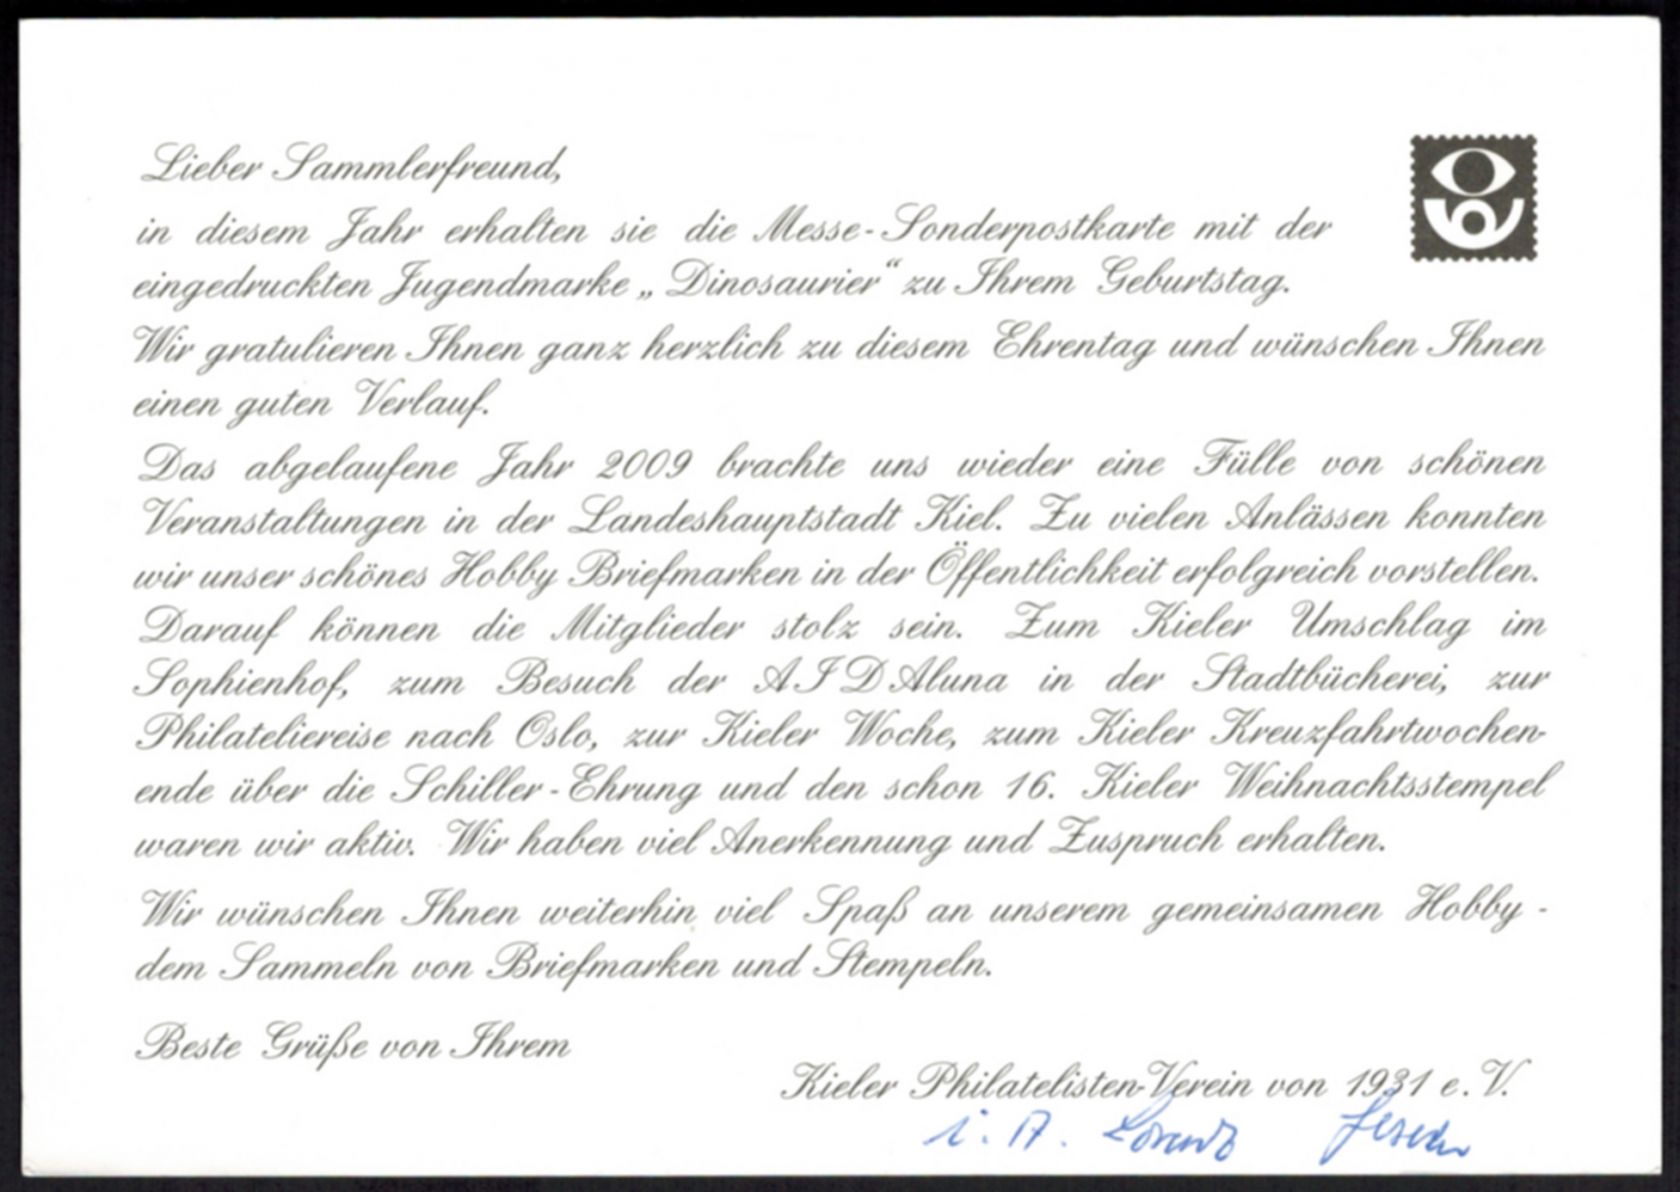 Lieber Sammlerfreund,
in diesem Jahr erhalten sie die Messe-Sonderpostkarte mit der
eingedruckten Jugendmarke „Dinosaurier“ zu Ihrem Geburtstag.
Wir gratulieren Ihnen ganz herzlich zu diesem Ehrentag und wünschen Ihnen
einen guten Verlauf.
Das abgelaufene Jahr 2009 brachte uns wieder eine Fülle von schönen
Veranstaltungen in der Landeshauptstadt Kiel. Zu vielen Anlässen konnten
wir unser schönes Hobby Briefmarken in der Öffentlichkeit erfolgreich vorstellen.
Darauf können die Mitglieder stolz sein. Zum Kieler Umschlag im
Sophienhof, zum Besuch der AIDAluna in der Stadtbücherei, zur
Philateliereise nach Oslo, zur Kieler Woche, zum Kieler Kreuzfahrtwochen-
ende über die Schiller-Ehrung und den schon 16. Kieler Weihnachtsstempel
waren wir aktiv. Wir haben viel Anerkennung und Zuspruch erhalten.
Wir wünschen Ihnen weiterhin viel Spaß an unserem gemeinsamen Hobby -
dem Sammeln von Briefmarken und Stempeln.
Beste Grüße von Ihrem
Kieler Philatelisten-Verein von 1931 e. V.
i. A.